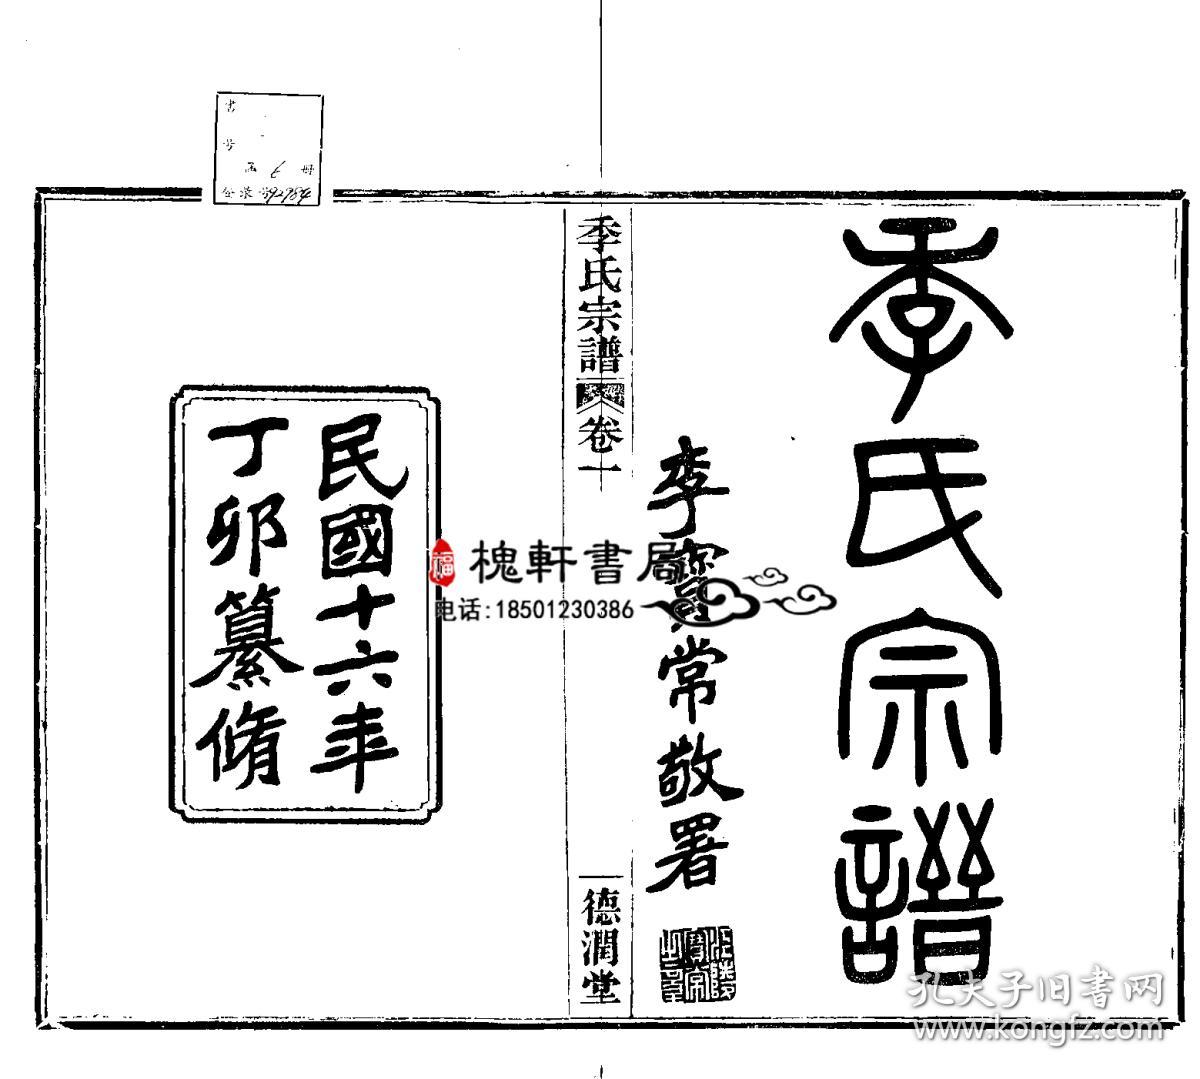 季氏宗譜
李寶常敬署
季氏宗譜 卷一
德潤堂
民國十六年
丁卯纂脩
書
号
冊
槐軒書局
福
电话:18501230386
孔夫子旧书网
www.kongfz.com